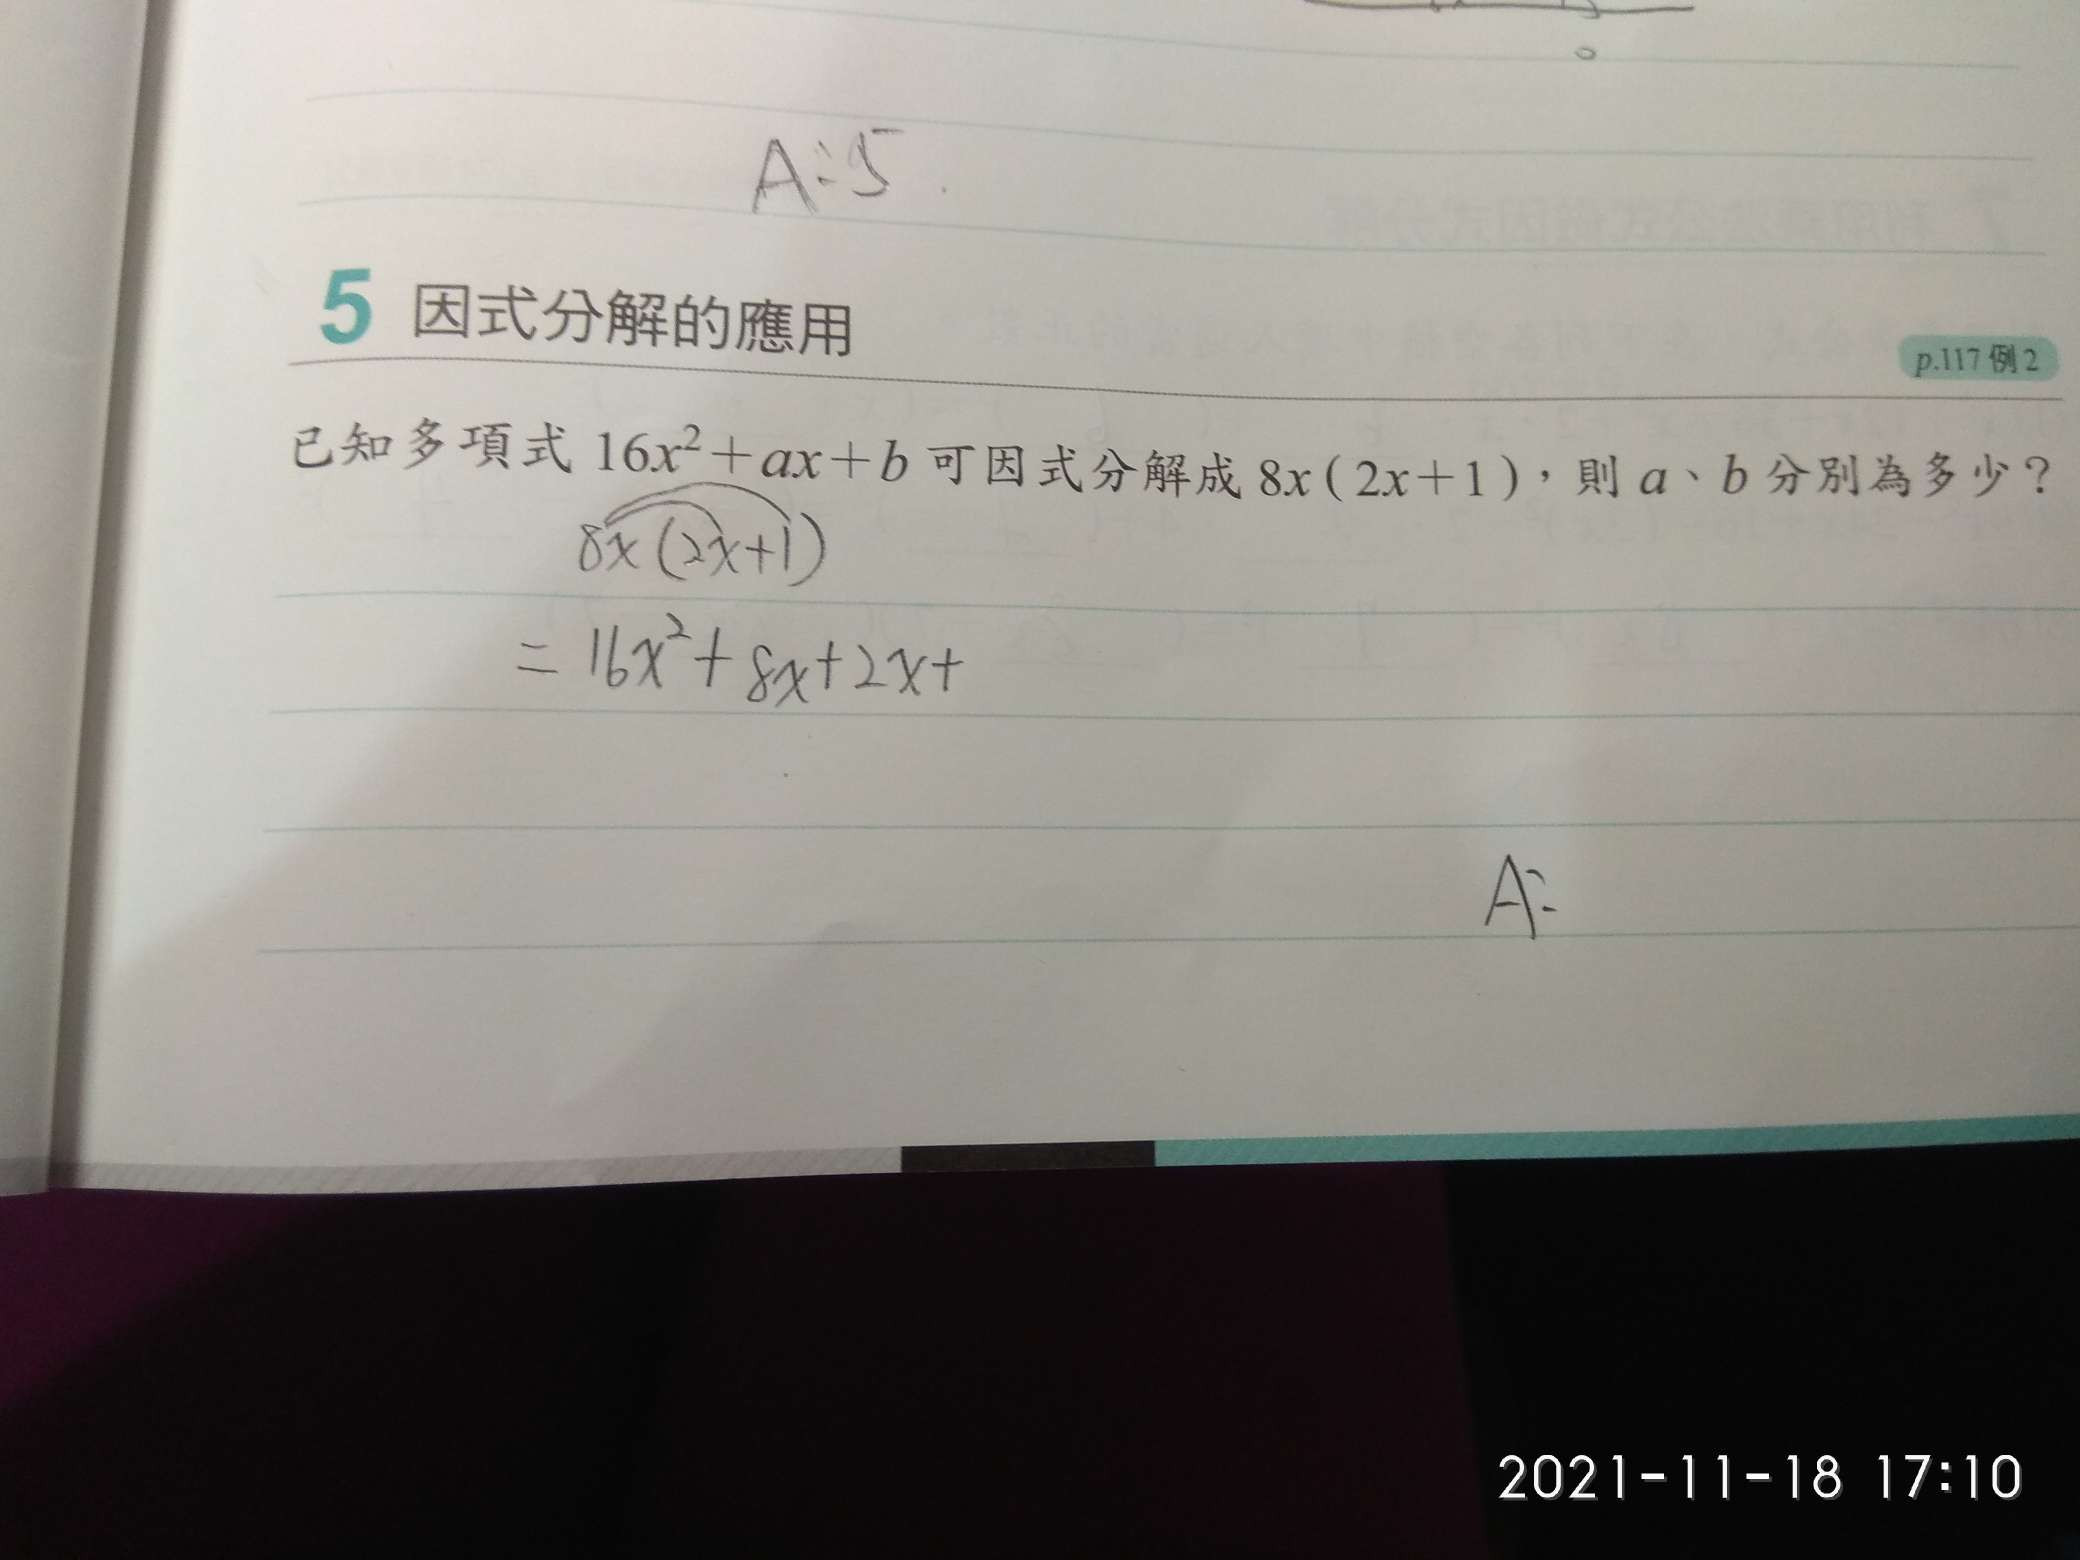 A:5
5 因式分解的應用
p.117 例2
已知多項式 16x²+ax+b 可因式分解成 8x(2x+1),則 a、b 分別為多少?
8x(2x+1)
= 16x²+8x+2x+
A:
2021-11-18 17:10